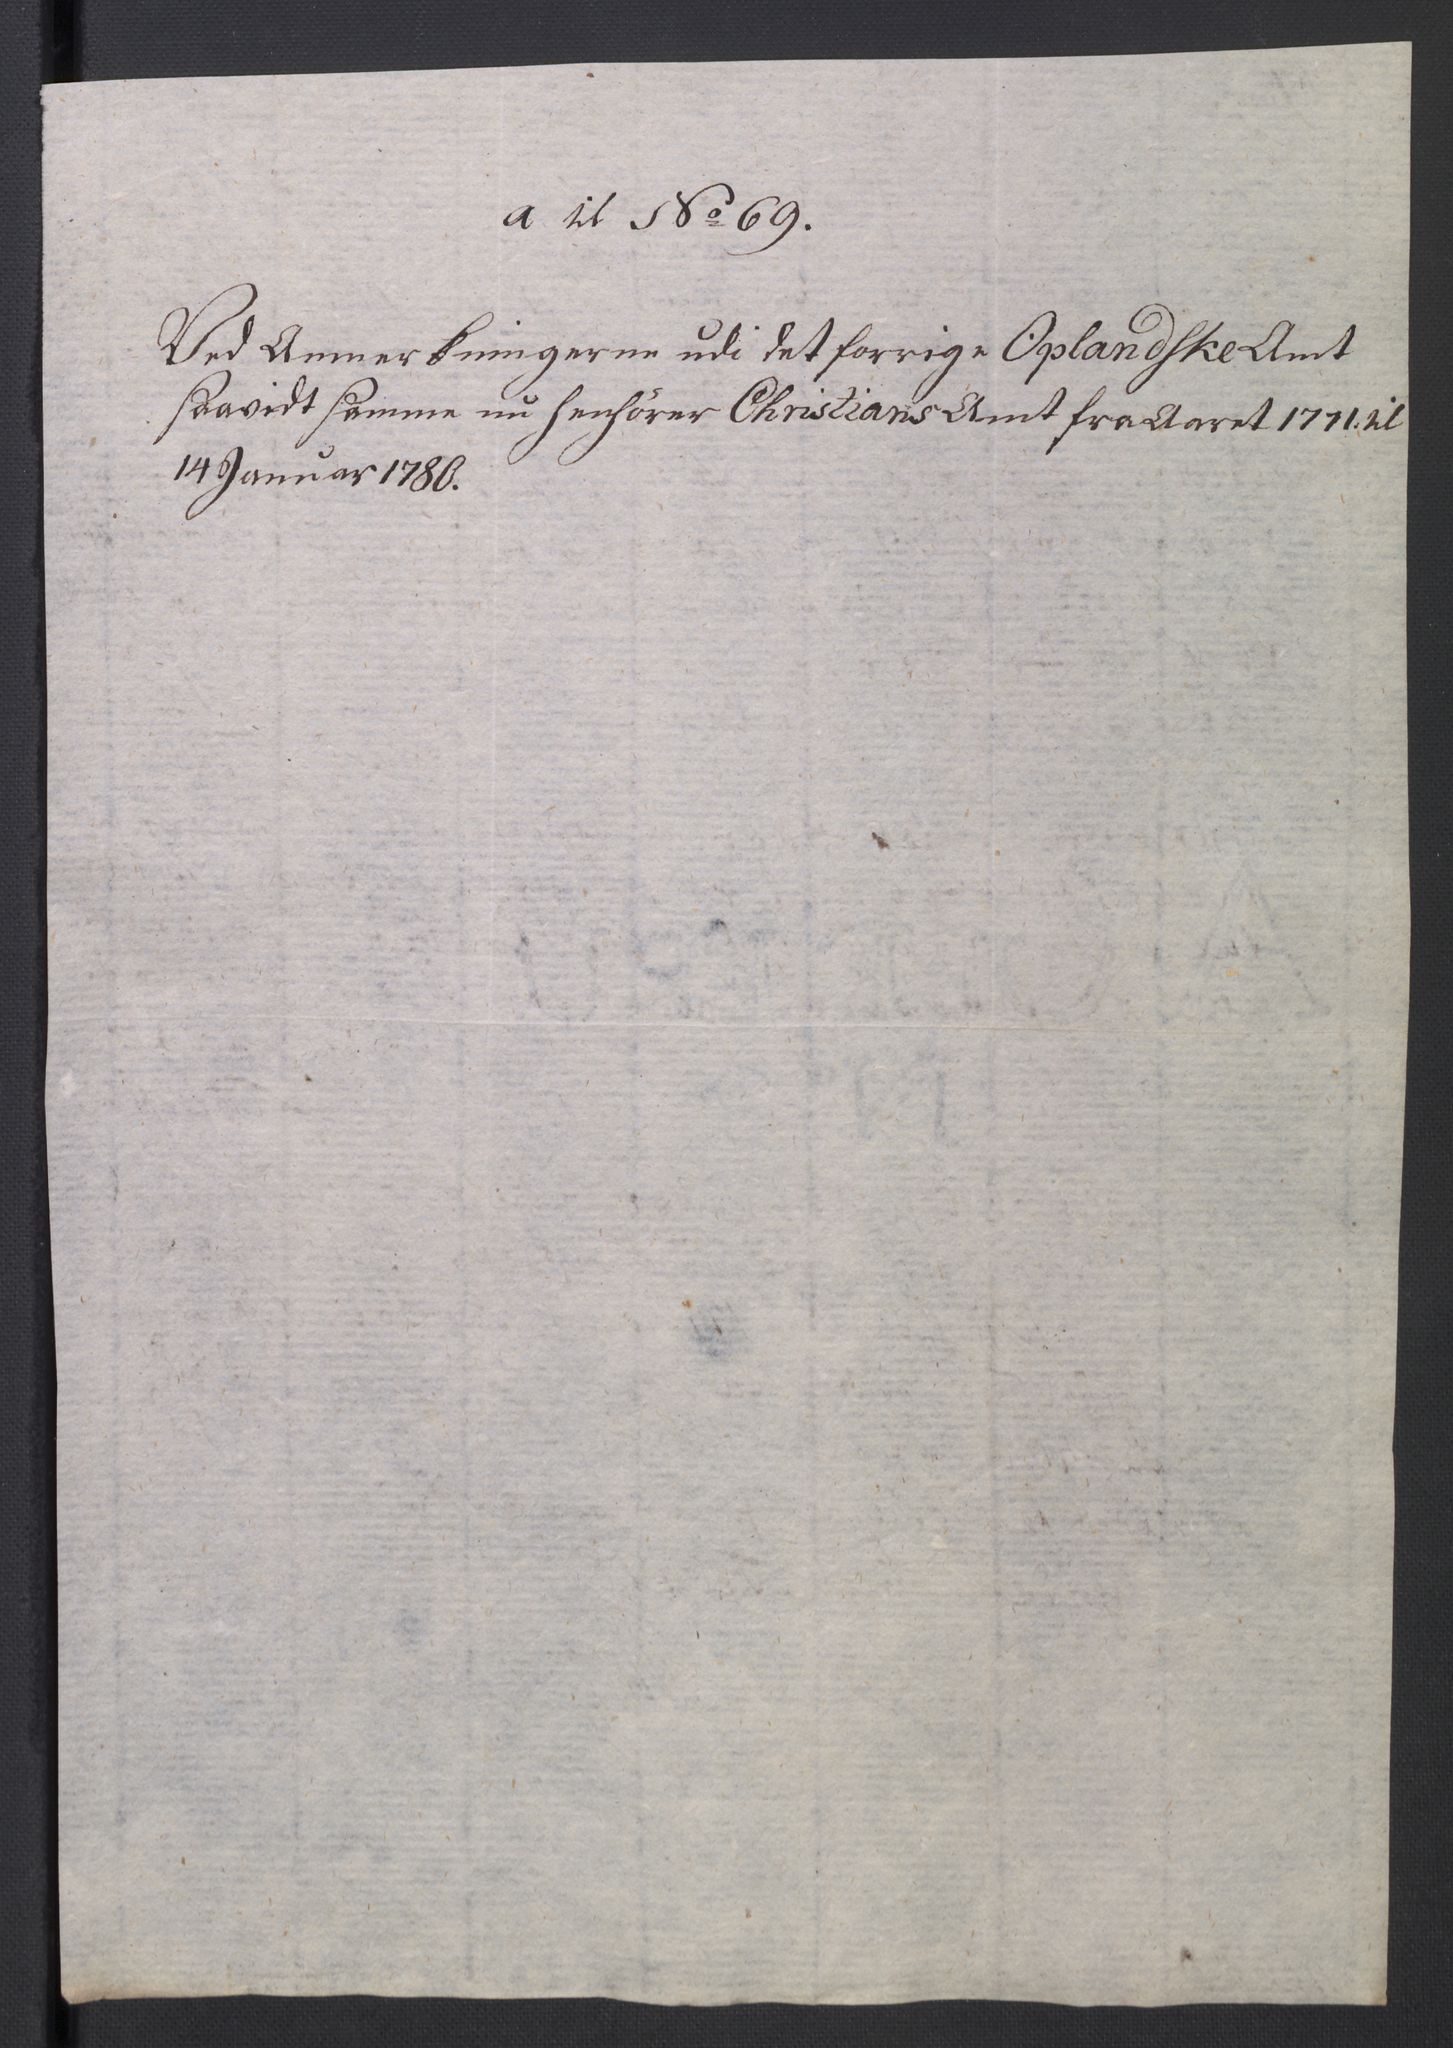 a til No 69.
Ved Anmerkningerne udi det forrige Oplandske Amt
saavidt samme nu henhörer Christians Amt fra Aaret 1771. til
14 Januar 1780.